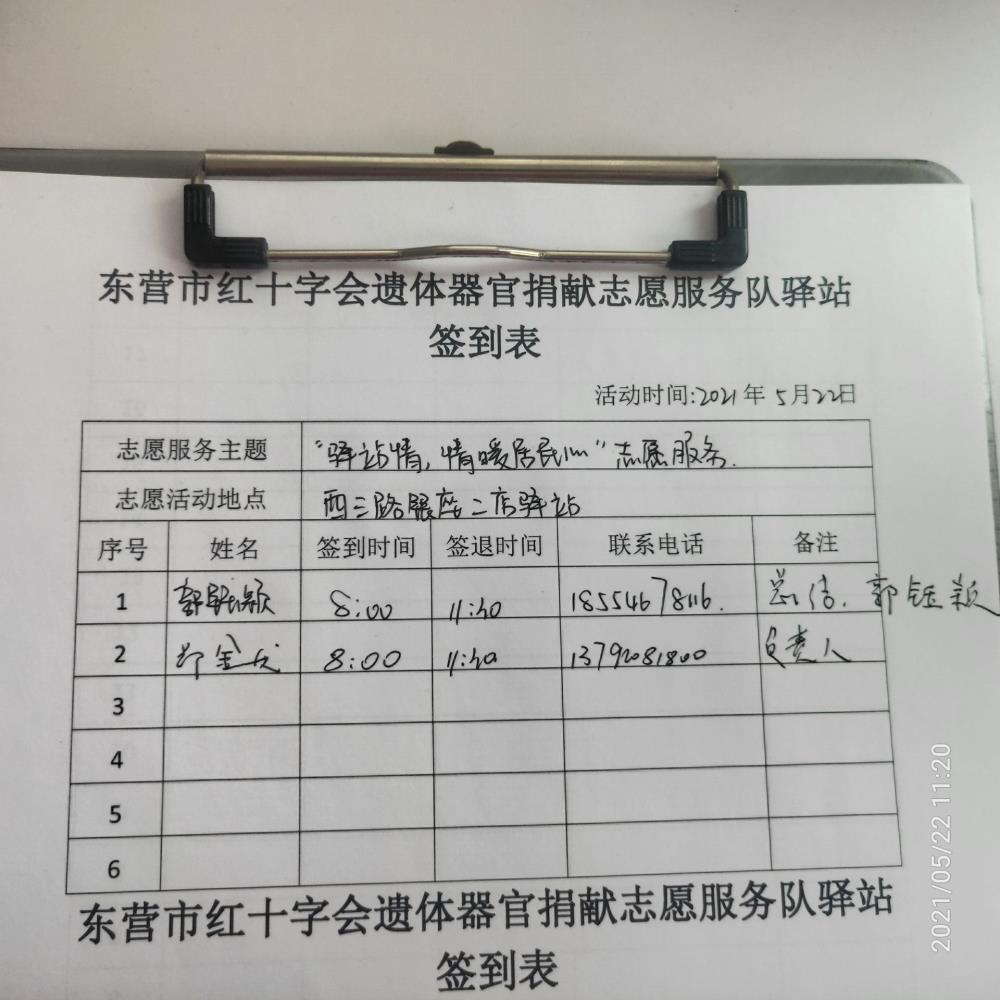 东营市红十字会遗体器官捐献志愿服务队驿站
签到表
活动时间:2021年5月22日
志愿服务主题 "驿站情,情暖居民心"志愿服务.
志愿活动地点 西三路银座二店驿站
序号 姓名 签到时间 签退时间 联系电话 备注
1 8:00 11:30 18554678116. 总结. 郭钰颖
2 郑金龙 8:00 11:30 13792081800 负责人
3
4
5
6
东营市红十字会遗体器官捐献志愿服务队驿站
签到表
2021/05/22 11:20